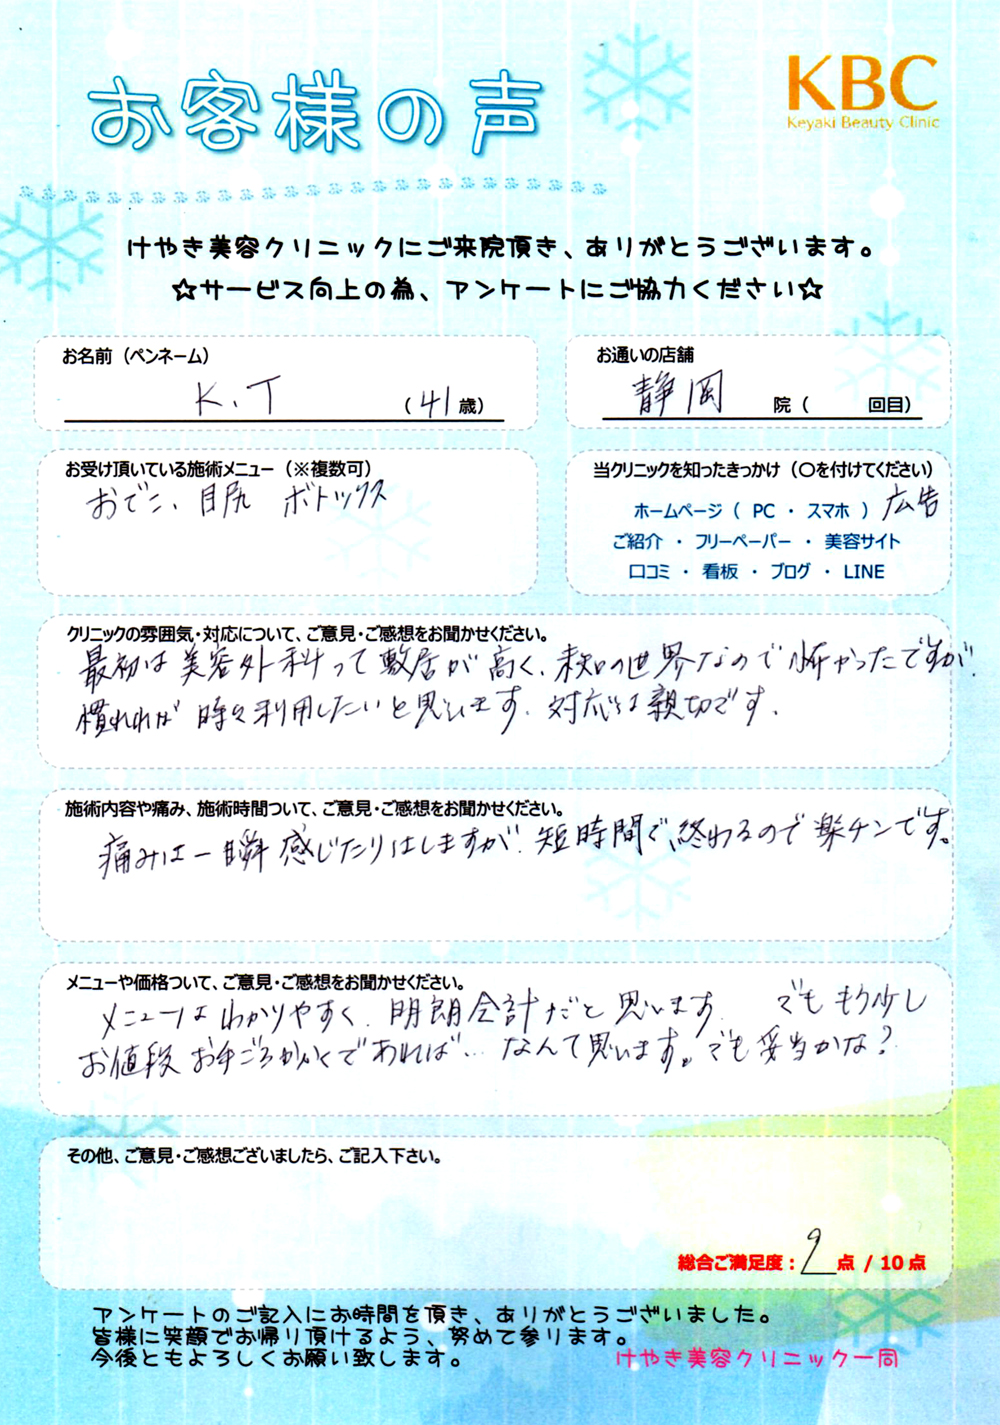 お客様の声
KBC
Keyaki Beauty Clinic
けやき美容クリニックにご来院頂き、ありがとうございます。
☆サービス向上の為、アンケートにご協力ください☆
お名前（ペンネーム）
K.T （41歳）
お通いの店舗
静岡 院（ 回目）
お受け頂いている施術メニュー（※複数可）
おでこ、目尻 ボトックス
当クリニックを知ったきっかけ（〇を付けてください）
ホームページ（ PC ・ スマホ ） 広告
ご紹介 ・ フリーペーパー ・ 美容サイト
口コミ ・ 看板 ・ ブログ ・ LINE
クリニックの雰囲気・対応について、ご意見・ご感想をお聞かせください。
最初は美容外科って敷居が高く、未知の世界なので怖かったですが、
慣れれば時々利用したいと思います。対応は親切です。
施術内容や痛み、施術時間ついて、ご意見・ご感想をお聞かせください。
痛みは一瞬感じたりはしますが、短時間で、終わるので楽チンです。
メニューや価格ついて、ご意見・ご感想をお聞かせください。
メニューはわかりやすく、明朗会計だと思います。 でももう少し
お値段お手ごろかかくであれば…なんて思います。でも妥当かな？
その他、ご意見・ご感想ございましたら、ご記入下さい。
総合ご満足度： 9 点 / 10 点
アンケートのご記入にお時間を頂き、ありがとうございました。
皆様に笑顔でお帰り頂けるよう、努めて参ります。
今後ともよろしくお願い致します。
けやき美容クリニック一同